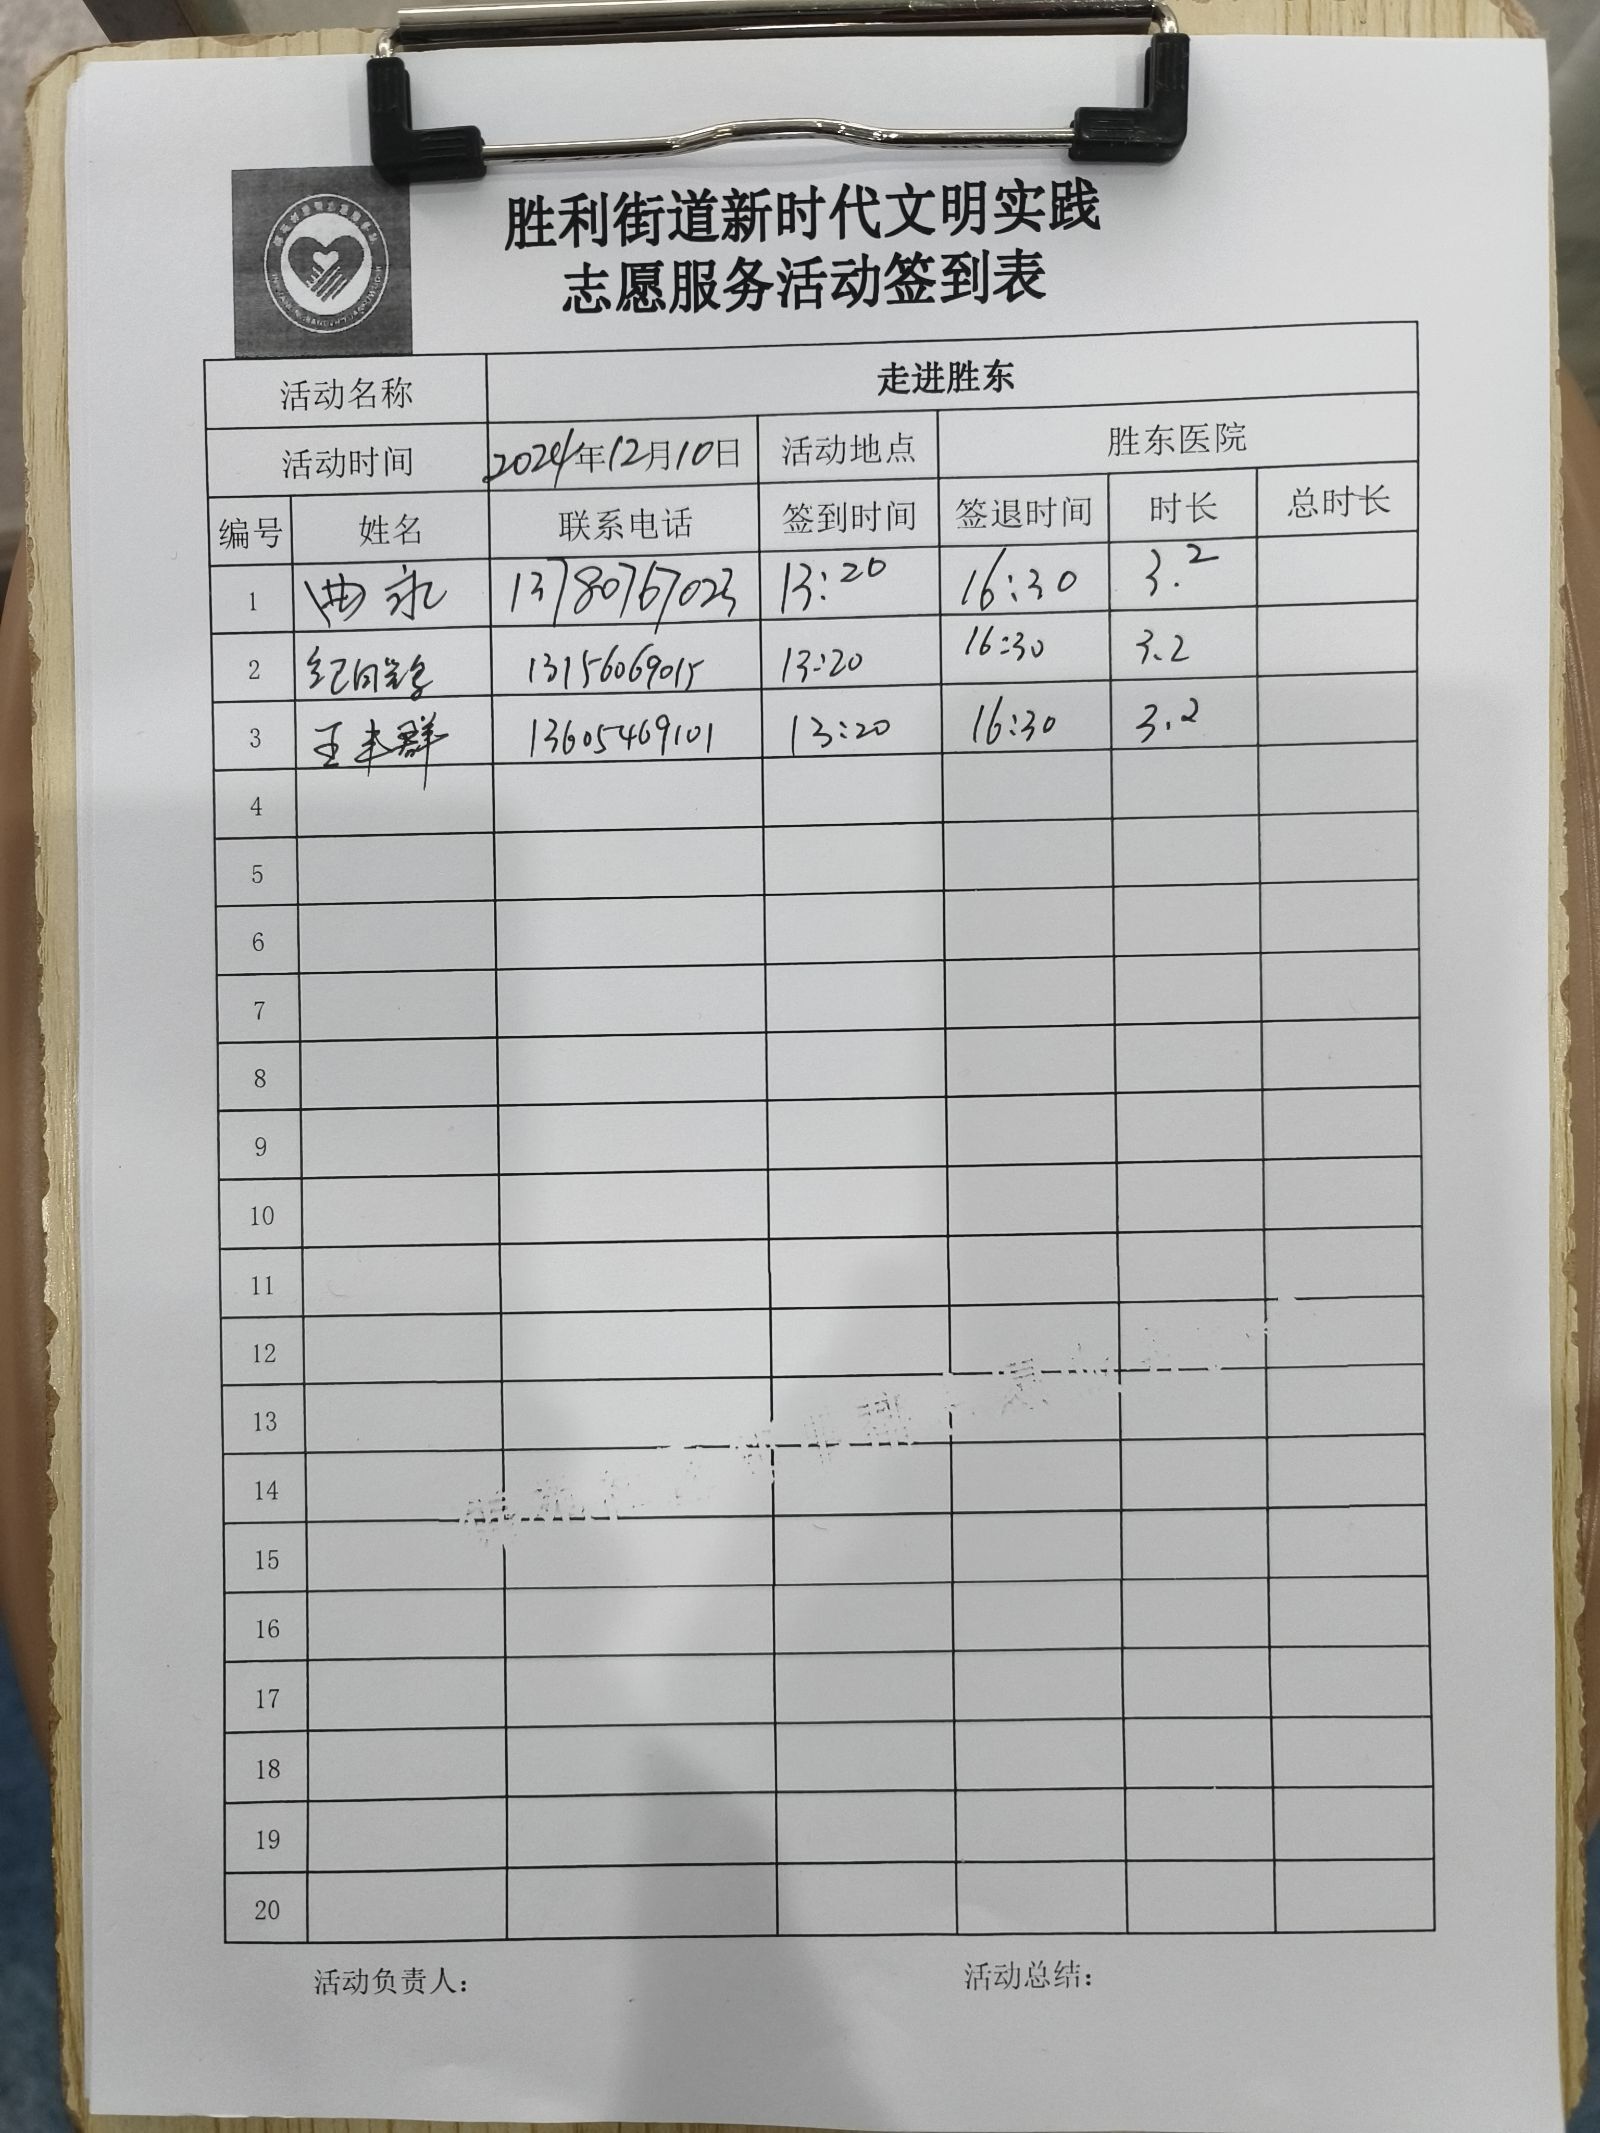 胜利街道新时代文明实践
志愿服务活动签到表
活动名称 走进胜东
活动时间 2024年12月10日 活动地点 胜东医院
编号 姓名 联系电话 签到时间 签退时间 时长 总时长
1 曲永 13780767023 13:20 16:30 3.2
2 13156069015 13:20 16:30 3.2
3 王丰群 13605469101 13:20 16:30 3.2
4
5
6
7
8
9
10
11
12
13
14
15
16
17
18
19
20
活动负责人： 活动总结：